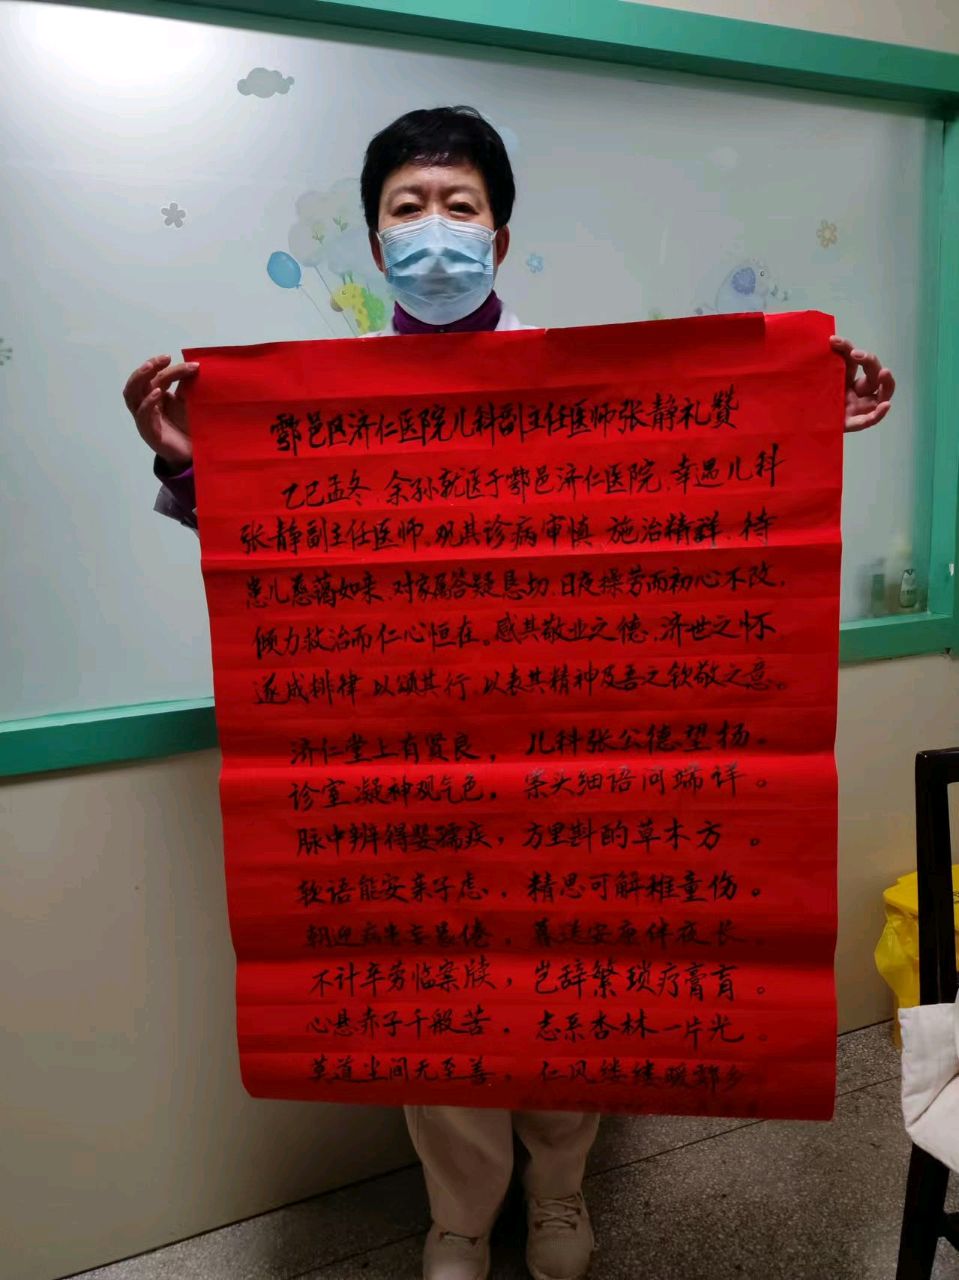 鄠邑区济仁医院儿科副主任医师张静礼赞
乙巳孟冬,余孙就医于鄠邑济仁医院,幸遇儿科
张静副主任医师,观其诊病审慎,施治精详,待
患儿慈蔼如来,对家属答疑恳切,日夜操劳而初心不改,
倾力救治而仁心恒在。感其敬业之德,济世之怀
遂成排律 以颂其行 以表其精神及吾之钦敬之意。
济仁堂上有贤良,儿科张公德望扬。
诊室凝神观气色,案头细语问端详。
脉中辨得婴孺疾,方里斟酌草木方。
软语能安亲子虑,精思可解稚童伤。
朝迎病患忘晨倦,暮送安康伴夜长
不计辛劳临案牍,岂辞繁琐疗膏肓。
心悬赤子千般苦,志系杏林一片光。
莫道尘间无至善,仁风缕缕暖鄠乡